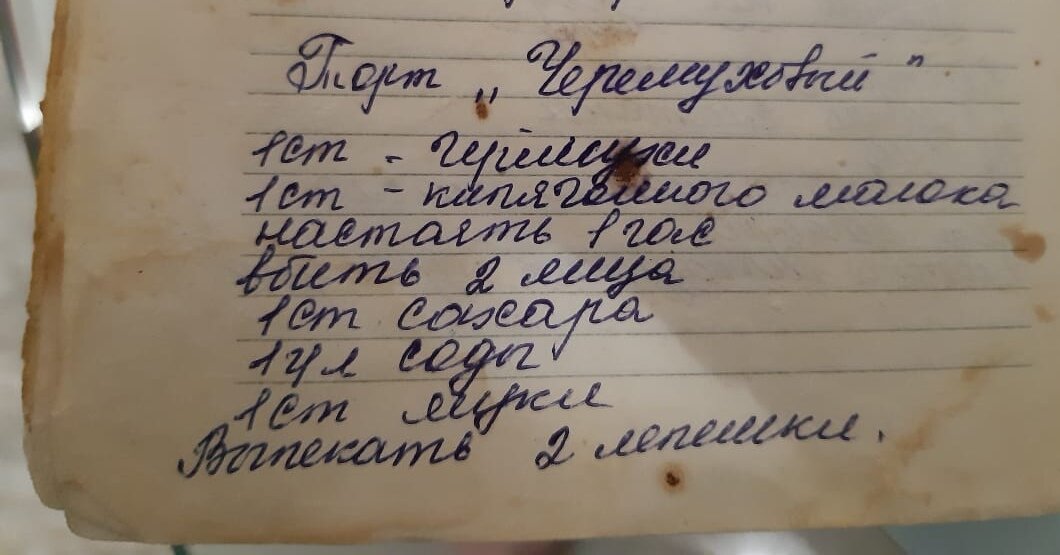 Торт „Черемуховый"
1ст - черёмухи
1ст - кипяченного молока
настоять 1 час
вбить 2 яйца
1ст сахара
1 ч л соды
1ст муки
Выпекать 2 лепешки.